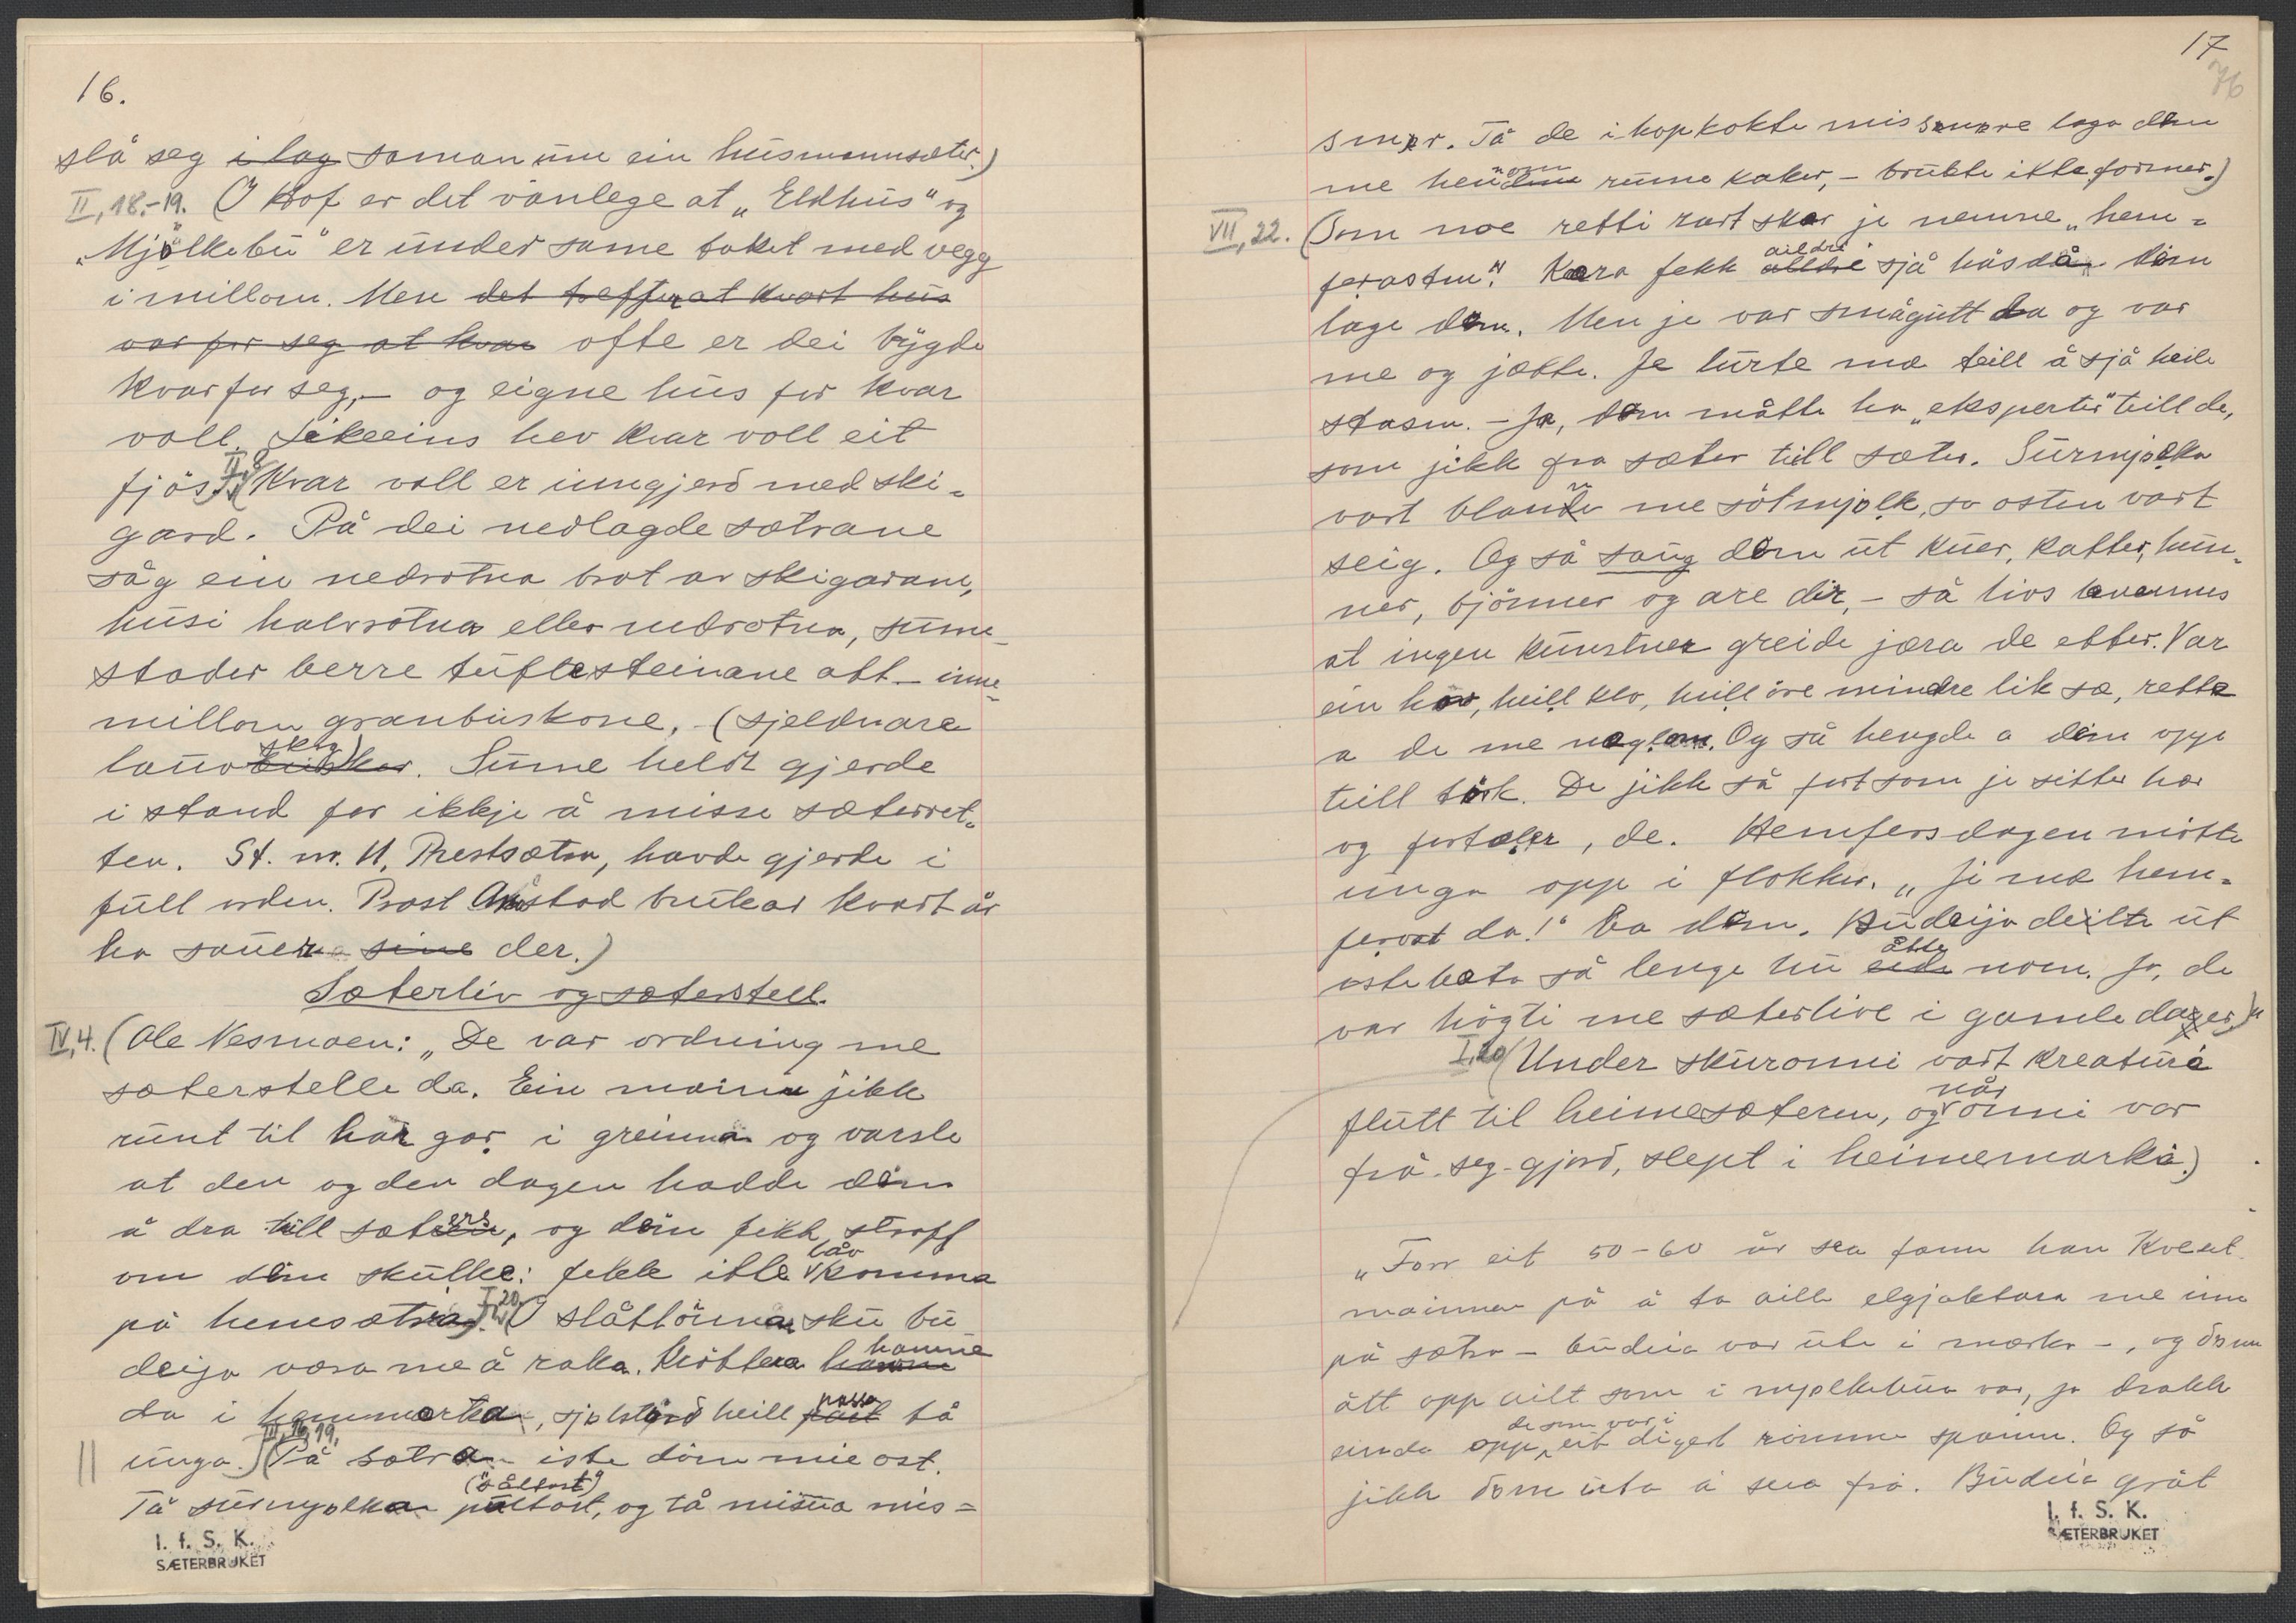 16.
slå seg i lag saman um ein husmannsæter.)
II, 18.-19. (I Hof er det vanlege at „Eldhus" og
„Mjølkebu" er under same taket med vegg
i millom. Men det treffer at kvart hus
var for seg at kvar ofte er dei bygde
kvar for seg, - og eigne hus for kvar
voll. Likeeins hev kvar voll eit
fjøs. II, 8 (Kvar voll er inngjerd med ski-
gard. På dei nedlagde sætrane
såg ein nedrotna brot av skigarane,
husi halvrotna eller nedrotna, sume
stader berre tuftesteinane att - inne-
millom granbuskone, - (sjeldnare
lauvbuskar skog). Sume heldt gjerde
i stand for ikkje å misse sæterret-
ten. St. nr. 11, Prestsætra, havde gjerde i
full orden. Prost Anstad brukar kvart år
ha sauer sine der.)
Sæterliv og sæterstell.
IV, 4. (Ole Nesmoen: „De var ordning me
sæterstelle da. Ein mainn jikk
runt til hår gar i greinna og varsle
at den og den dagen hadde døm
å dra till sætern, og døm fekk straff
om døm skulke: fekk itte låv komma
på hemsætra.) I, 20 (I slåttonna sku bu
deija væra me å raka. Krøttera hamne
da i hemmarka, sjølstørd heill passa tå
unga.) III, 16, 19, (På sætra iste døm mie ost.
Tå surmjølka pultost („såltost"), og tå misua mis-
I. f. S. K.
SÆTERBRUKET
17
76
smør. Tå de ihopkokte missmøre laga døm
me henom runne kaker, - brukte itte former.)
VII, 22. (Som noe retti rart skar je nemne „hem-
ferostn". Kara fekk aildri sjå håsdå døm
laga døm. Men je var smågutt da og var
me og jætte. Je lurte mæ teill å sjå heile
stasen. - Ja, døm måtte ha „eksperter" teill de,
som jikk fra sæter till sæter. Surmjølka
vart blanda me søtmjølk, så osten vart
seig. Og så saug døm ut kuer, katter, hun-
ner, bjønner og are dir, - så livs levennes
at ingen kunstner greide jæra de etter. Var
ein hår, heill klo, heill øre mindre lik sæ, rette
a de me naglom. Og så hengde a døm opp
teill tørk. De jikk så fort som je sitter her
og fortæler, de. Hemfersdagen møtte
unga opp i flokker. „Ji mæ hem-
ferost da!" ba døm. Budeija deilte ut
ostebeta så lenge hu åtte nom. Ja, de
var høgti me sæterlive i gamle dager.)"
I, 20 (Under skuronni vart kreaturi
flutt til heimesæteren, og når onni var
frå-seg-gjord, slept i heimemarki.)
„Forr eit 50-60 år sea fann han Kveset-
mainnen på å ta aille elgjaktara me inn
på sætra - budeia var ute i marka -, og døm
ått opp ailt som i mjølkebua var, ja drakk
enda opp de som var i eit digert rømme spann. Og så
jikk døm uta å sea frå. Budeia gråt
I. f. S. K.
SÆTERBRUKET